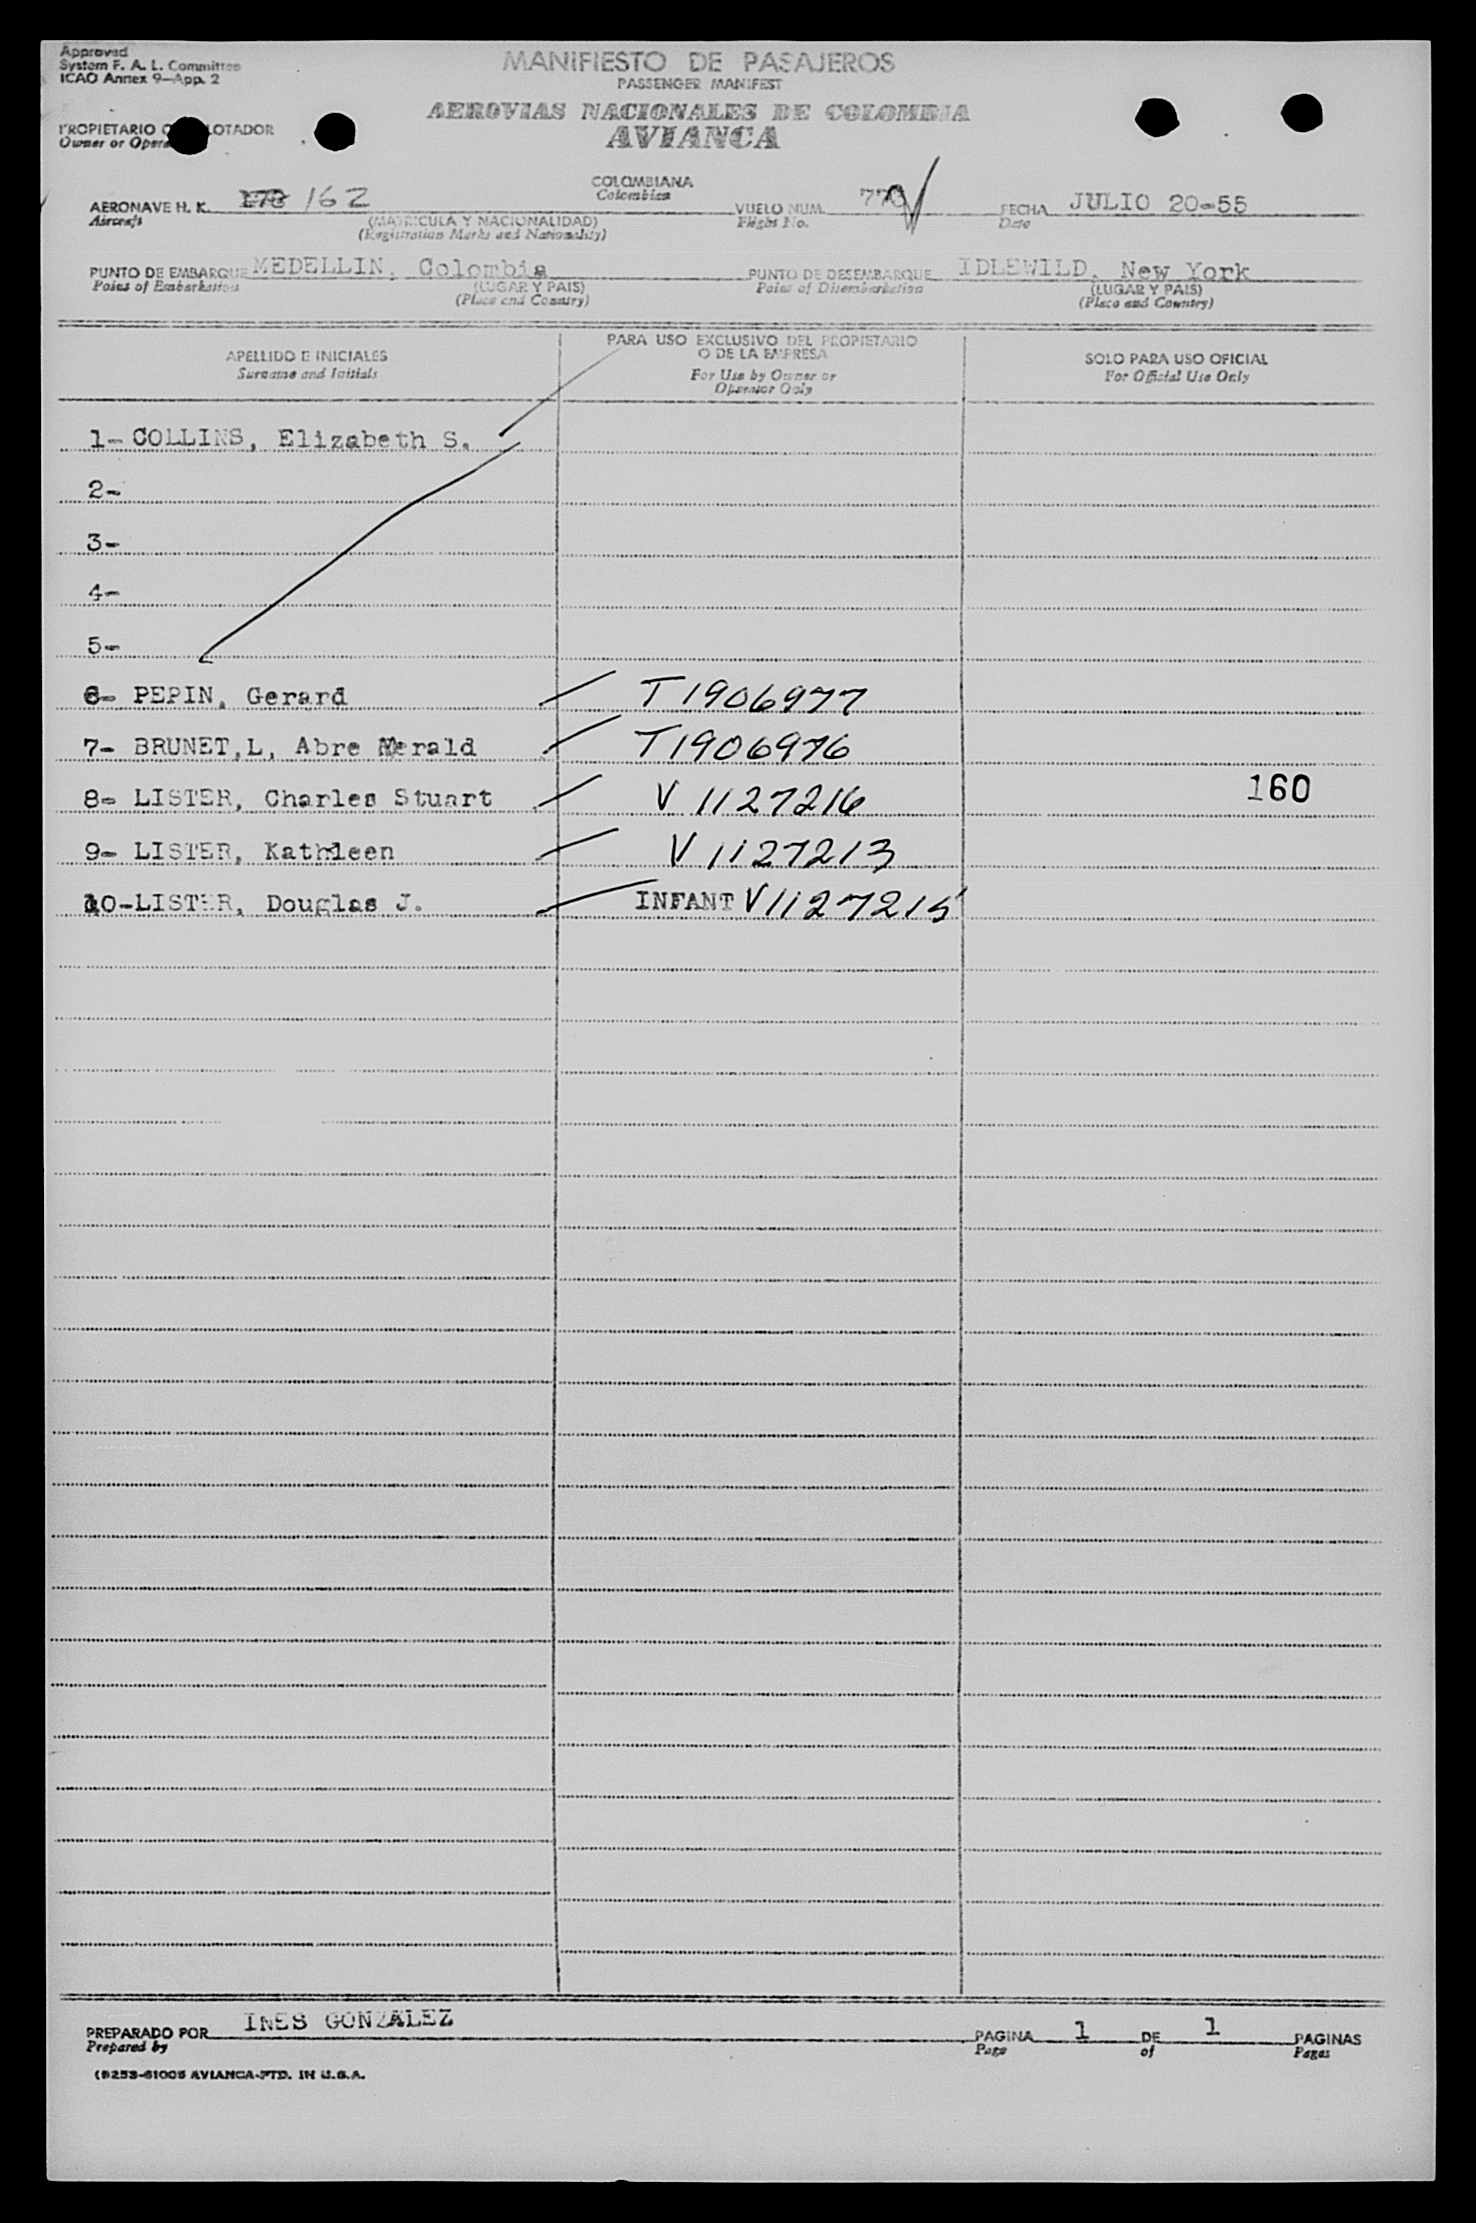 Approved
System F. A. L. Committee
ICAO Annex 9—App. 2
MANIFIESTO DE PASAJEROS
PASSENGER MANIFEST
AEROVIAS NACIONALES DE COLOMBIA
AVIANCA
PROPIETARIO O LOTADOR
Owner or Opera
COLOMBIANA
Colombian
AERONAVE H. K. 178 162
Aircraft
(MATRICULA Y NACIONALIDAD)
(Registration Marks and Nationality)
VUELO NUM. 770
Flight No.
FECHA JULIO 20-55
Date
PUNTO DE EMBARQUE MEDELLIN, Colombia
Point of Embarkation
(LUGAR Y PAIS)
(Place and Country)
PUNTO DE DESEMBARQUE IDLEWILD, New York
Point of Disembarkation
(LUGAR Y PAIS)
(Place and Country)
APELLIDO E INICIALES
Surname and Initials
PARA USO EXCLUSIVO DEL PROPIETARIO
O DE LA EMPRESA
For Use by Owner or
Operator Only
SOLO PARA USO OFICIAL
For Official Use Only
1- COLLINS, Elizabeth S.
2-
3-
4-
5-
6- PEPIN, Gerard T1906977
7- BRUNET,L, Abre Merald T1906976
8- LISTER, Charles Stuart V 1127216 160
9- LISTER, Kathleen V 1127213
10-LISTER, Douglas J. INFANT V1127215
PREPARADO POR INES GONZALEZ
Prepared by
PAGINA 1 DE 1 PAGINAS
Page of Pages
(5253-61005 AVIANCA-PTD. IN U.S.A.